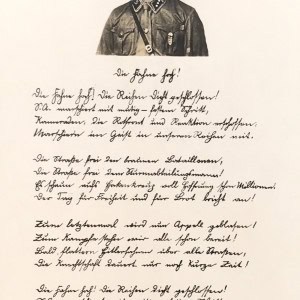 Die Fahne hoch!
Die Fahne hoch! Die Reihen dicht geschlossen!
S.A. marschiert mit mutig-festem Schritt,
Kameraden, die Rotfront und Reaktion erschossen,
Marschieren im Geist in unseren Reihen mit.
Die Straße frei den braunen Bataillonen,
Die Straße frei dem Sturmabteilungsmann!
Es schauen aufs Hakenkreuz voll Hoffnung schon Millionen.
Der Tag für Freiheit und für Brot bricht an!
Zum letztenmal wird nun Appell geblasen!
Zum Kampfe stehn wir alle schon bereit!
Bald flattern Hitlerfahnen über alle Straßen,
Die Knechtschaft dauert nur noch kurze Zeit!
Die Fahne hoch! Die Reihen dicht geschlossen!